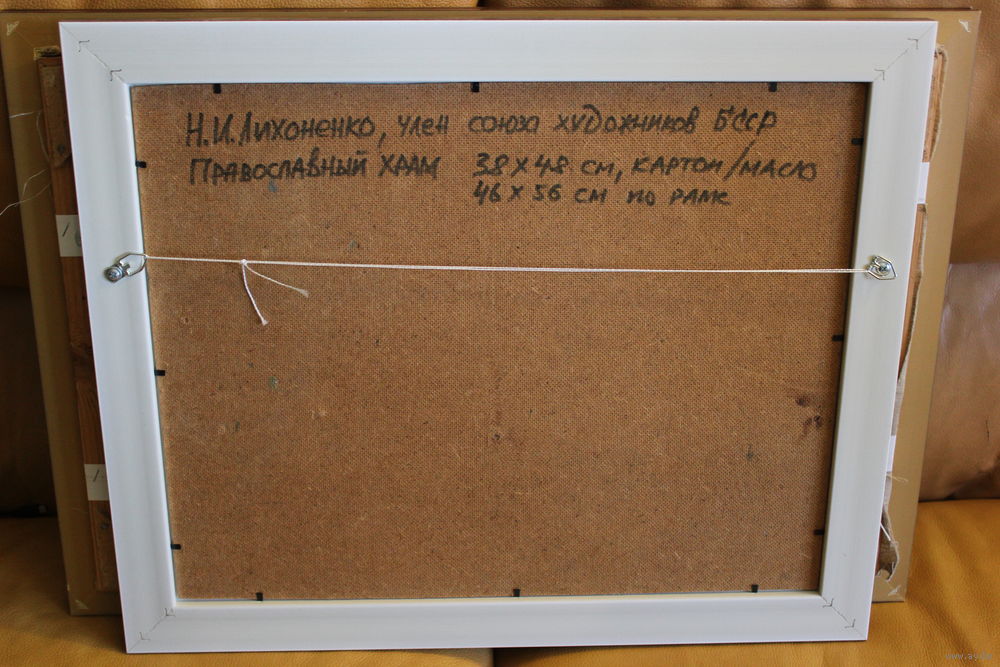 Н.И.Лихоненко, член союза художников БССР
Православный храм 38 х 48 см, картон/масло
46 х 56 см по раме